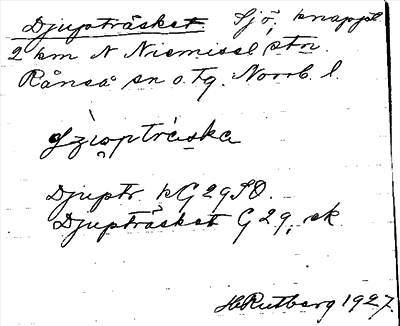 Djupträsket Sjö, knappt
2 km N Niemisel stn.
Råneå sn o. tg. Norrb. l.
Djuptr. kG 29 SO.
Djupträsket G 29, ek
H Rutberg 1927.